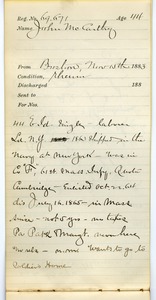 Reg. No. 69,671 Age 44
Name John McCarthy
From Boston, Nov 15th 1883
Condition, rheum
Discharged 188
Sent to
For No.
44 E. Id. Single - Laborer
Ld. N.Y. 1863 Shipped in the
Navy at New York - was in
Co F, 61st Mass Inf. Resid
Cambridge - Enlisted Oct 22, 64
dis July 16 1865 - in Mass
since - not 5 yrs - no taxes
Par Pat & Margt. now here
no rels - no home Wants to go to
Soldiers Home